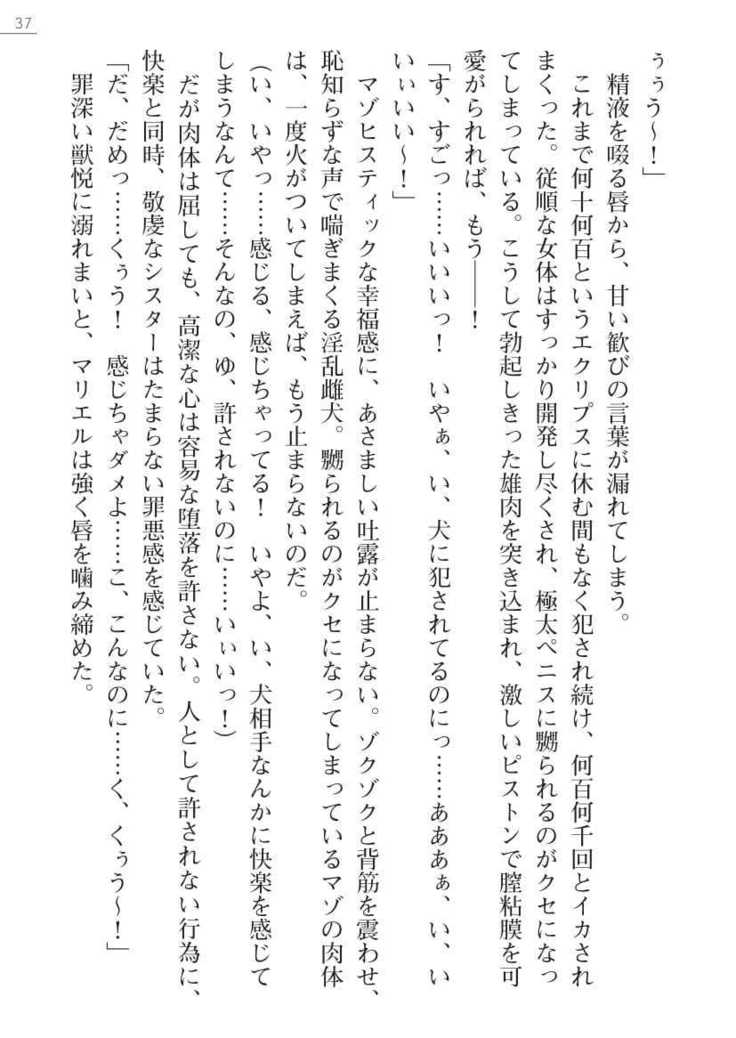 37
ぅぅう～！」
　精液を啜る唇から、甘い歓びの言葉が漏れてしまう。
　これまで何十何百というエクリプスに休む間もなく犯され続け、何百何千回とイカされ
まくった。従順な女体はすっかり開発し尽くされ、極太ペニスに嬲られるのがクセになっ
てしまっている。こうして勃起しきった雄肉を突き込まれ、激しいピストンで膣粘膜を可
愛がられれば、もう――！
「す、すごっ……いいいっ！　いやぁ、い、犬に犯されてるのにっ……あああぁ、い、い
いぃいい～！」
　マゾヒスティックな幸福感に、あさましい吐露が止まらない。ゾクゾクと背筋を震わせ、
恥知らずな声で喘ぎまくる淫乱雌犬。嬲られるのがクセになってしまっているマゾの肉体
は、一度火がついてしまえば、もう止まらないのだ。
（い、いやっ……感じる、感じちゃってる！　いやよ、い、犬相手なんかに快楽を感じて
しまうなんて……そんなの、ゆ、許されないのに……いぃいっ！）
　だが肉体は屈しても、高潔な心は容易な堕落を許さない。人として許されない行為に、
快楽と同時、敬虔なシスターはたまらない罪悪感を感じていた。
「だ、だめっ……くぅう！　感じちゃダメよ……こ、こんなのに……く、くぅう～！」
　罪深い獣悦に溺れまいと、マリエルは強く唇を噛み締めた。